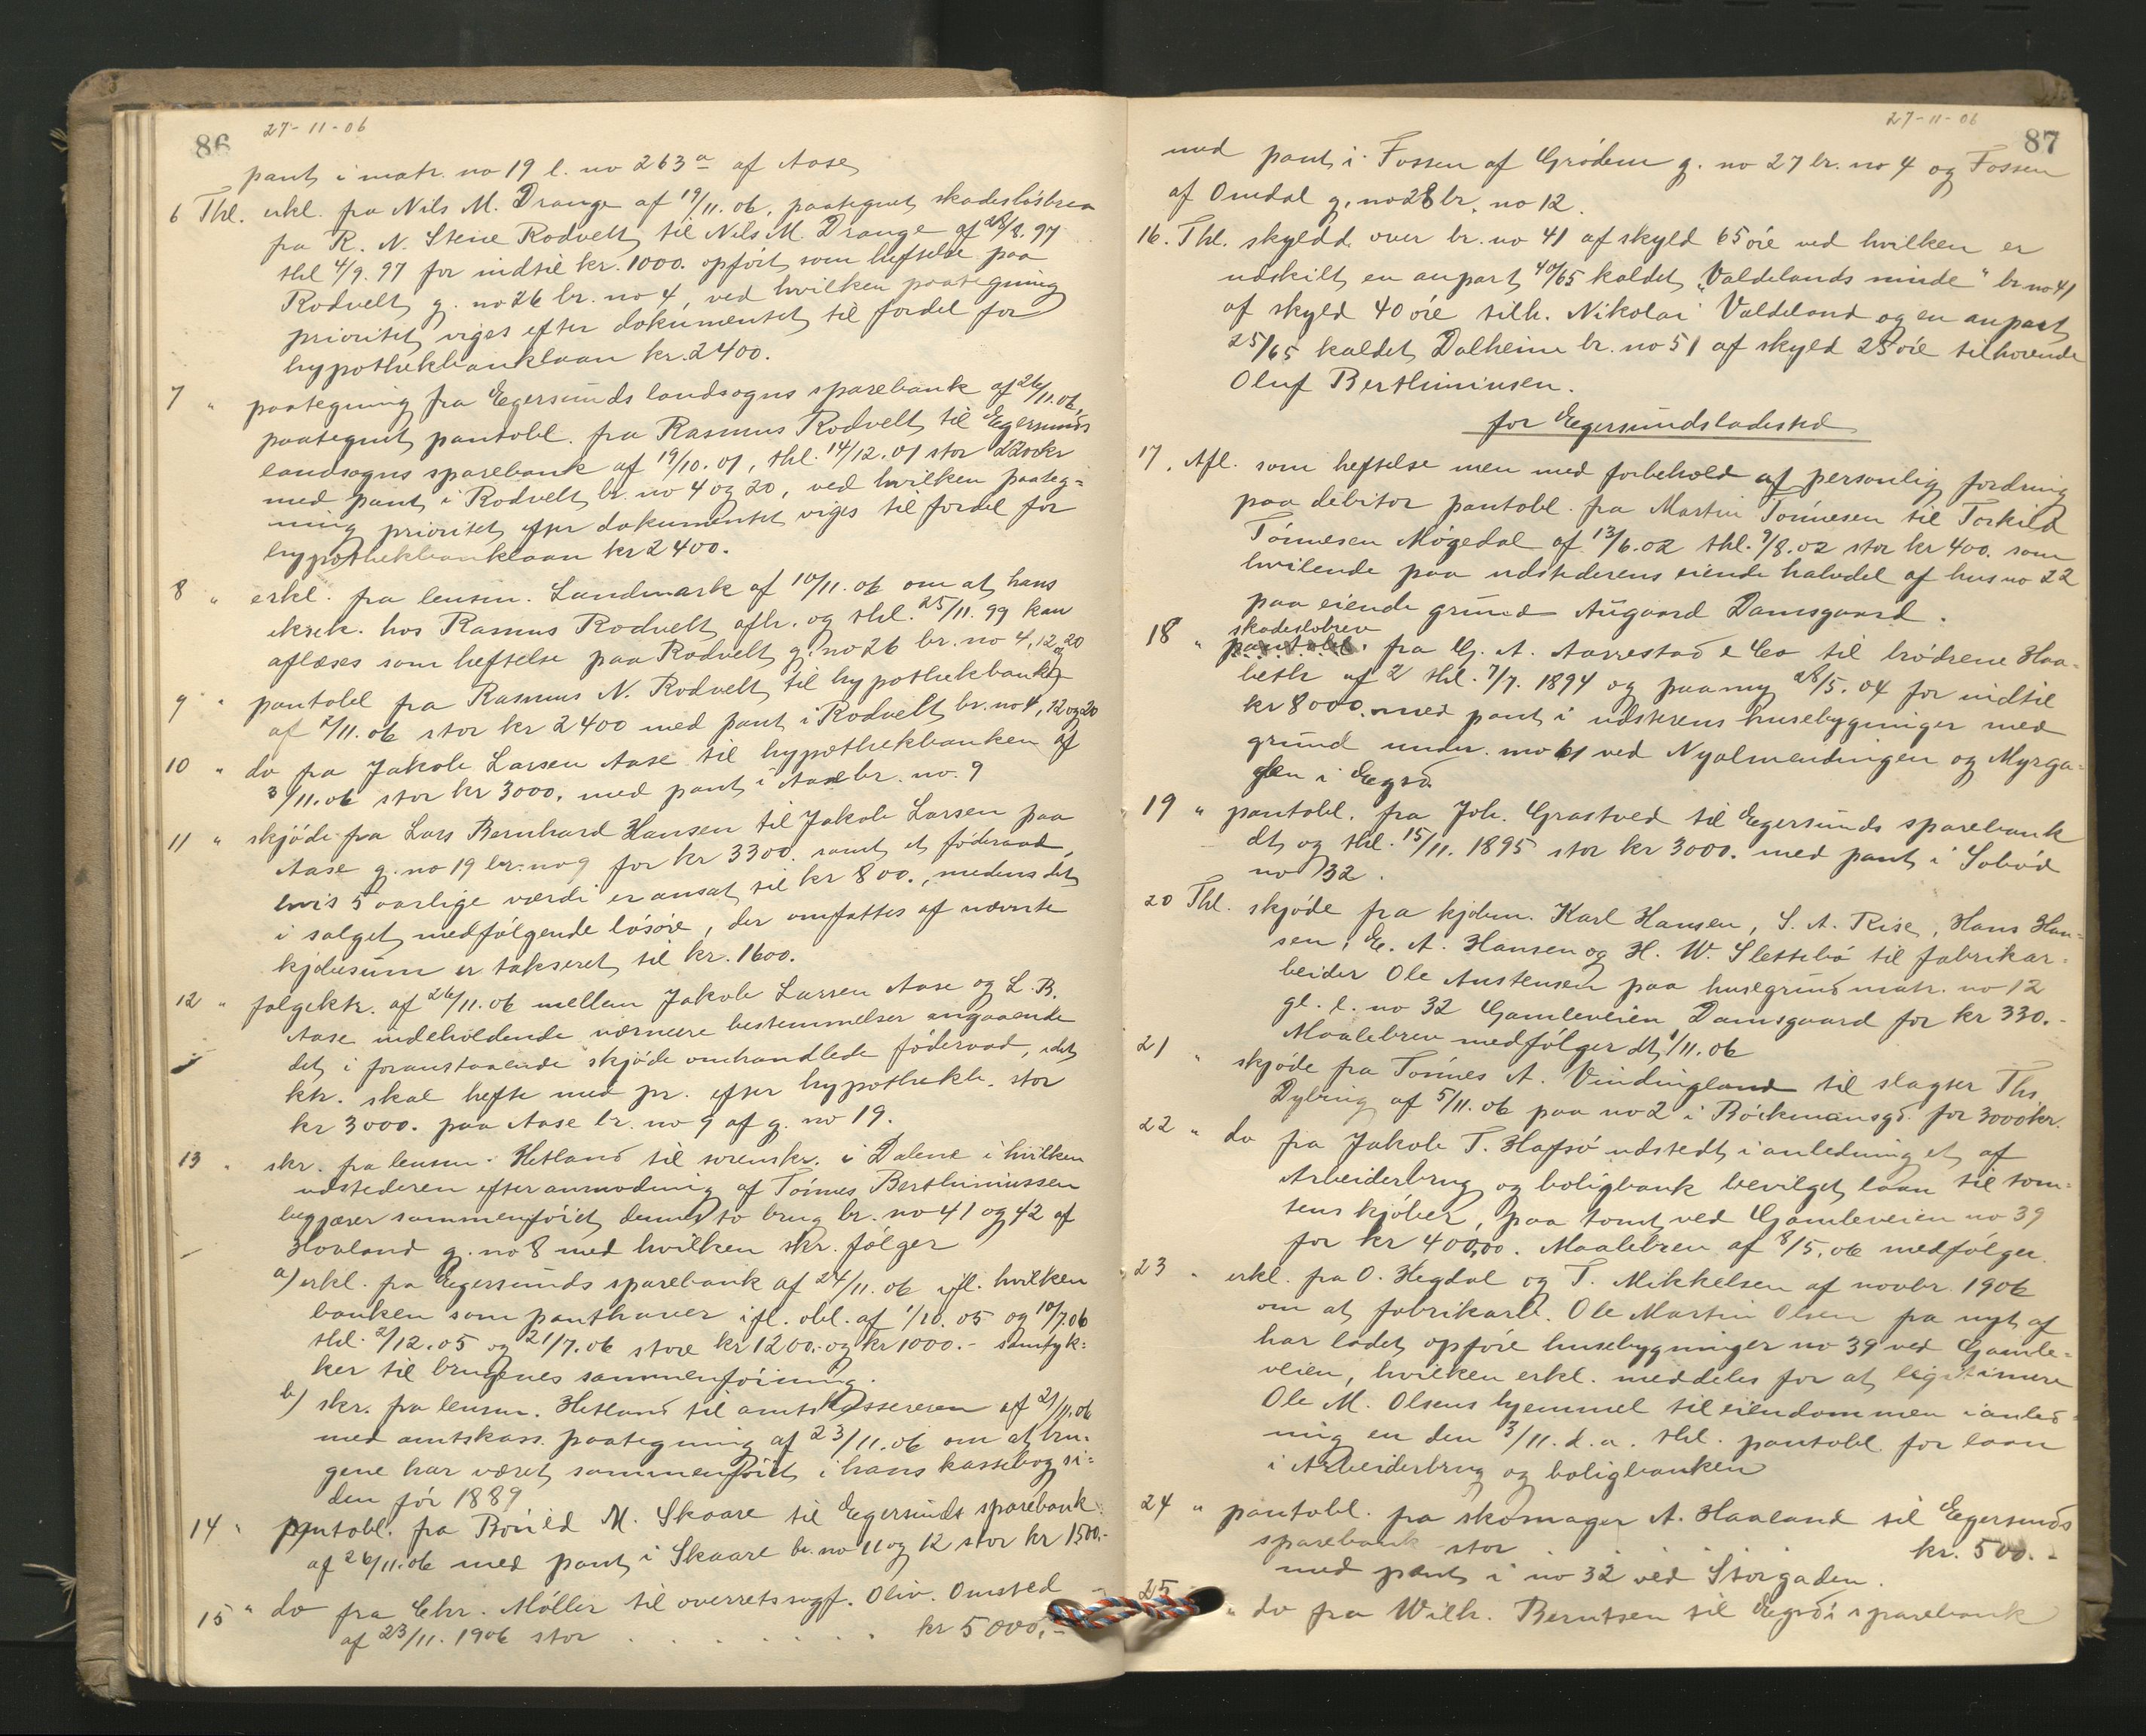 86
27-11-06
pant i matr. no 19 l. no 263a af Aase
6 Thl. erkl. fra Nils M. Drange af 19/11.06, paategnet skadesløsbrev
fra R. N. Stene Rodvelt til Nils M. Drange af 28/8.97
thl 4/9.97 for indtil kr. 1000. opført som heftelse paa
Rodvelt g. no 26 br. no 4, ved hvilken paategning
prioritet viges efter dokumentet til fordel for
hypothekbanklaan kr. 2400.
7 " paategning fra Egersunds landsogns sparebank af 26/11.06,
paategnet pantobl. fra Rasmus Rodvelt til Egersunds
landsogns sparebank af 19/10.01, thl. 14/12.01 stor kr
med pant i Rodvelt br. no 4 og 20, ved hvilken paateg=
ning prioritet efter dokumentet viges til fordel for
hypothekbanklaan kr 2400.
8 " erkl. fra lensm. Landmark af 10/11.06 om at hans
eksek. hos Rasmus Rodvelt afh. og thl. 25/11.99 kan
aflæses som heftelse paa Rodvelt g. no 26 br. no 4, 12 og 20
9 " pantobl fra Rasmus N. Rodvelt til hypothekbanken
af 2/11.06 stor kr 2400 med pant i Rodvelt br. no 4, 12 og 20
10 " do fra Jakob Larsen Aase til hypothekbanken af
3/11.06 stor kr 3000. med pant i Aase br. no. 9
11 " skjøde fra Lars Bernhard Hansen til Jakob Larsen paa
Aase g. no 19 br. no 9 for kr 3300. samt et føderaad,
hvis 5 aarlige værdi er ansat til kr 800., medens det
i salget medfølgende løsøre, der omfattes af nævnte
kjøbesum er takseret til kr. 1600.
12 " følgektr. af 26/11.06 mellem Jakob Larsen Aase og L. B.
Aase indeholdende nærmere bestemmelser angaaende
det i foranstaaende skjøde omhandlede føderaad, idet
ktr. skal hefte med pr. efter hypothekb. stor
kr 3000. paa Aase br. no 9 af g. no 19.
13 " skr. fra lensm. Hetland til sorenskr. i Dalene i hvilken
udstederen efter anmodning af Tønnes Berthiniussen
begjærer sammenføiet dennes to brug br. no 41 og 42 af
Hovland g. no 8 med hvilken skr. følger
a) erkl. fra Egersunds sparebank af 24/11.06 ifl. hvilken
banken som panthaver ifl. obl. af 1/10.05 og 10/7.06
thl. 2/12.05 og 21/7.06 store kr 1200.- og kr 1000.- samtyk:
ker til brugenes sammenføining.
b) skr. fra lensm. Hetland til amtskassereren af 21/11.06
med amtskass. paategning af 23/11.06 om at bru-
gene har været sammenføiet i hans kassebog si=
den før 1889
14 " pantobl. fra M. Skaare til Egersunds sparebank
af 26/11.06 med pant i Skaare br. no 11 og 12 stor kr 1500.-
15 " do fra Chr. Møller til overretssagf. Oliv. Omsted
af 23/11.1906 stor . . . . . . . kr 5000.-
27-11-06
87
med pant i Fossen af Grødem g. no 27 br. no 4 og Fossen
af Omdal g. no 28 br. no 12.
16. Thl. skyldd. over br. no 41 af skyld 65 øre ved hvilken er
udskilt en anpart 40/65 kaldet „Valdelands minde" br. no 41
af skyld 40 øre tilh. Nikolai Valdeland og en anpart
25/65 kaldet Dalheim br. no 51 af skyld 25 øre tilhørende
Oluf Berthiniusen.
for Egersunds ladested
17. Afl. som heftelse men med forbehold af personlig fordring
paa debitor pantobl. fra Martin Tønnesen til Torkild
Tønnesen Møgedal af 13/6.02 thl. 9/8.02 stor kr 400. som
hvilende paa udstederens eiende halvdel af hus no 22
paa eiende grund Augaard Damsgaard.
18 " skadeslobrev
pantobl. fra G. A. Aarrestad & Co til brødrene Haa-
beth af 2 thl. 7/7.1894 og paany 28/5.04 for indtil
kr 8000. med pant i udsterens husebygninger med
grund under. mo 61 ved Nyalmendingen og Myrga=
den i Egsd.
19 " pantobl. fra Joh. Grastved til Egersunds sparebank
dt og thl. 15/11.1895 stor kr 3000. med pant i Sobød
no 132.
20 Thl. skjøde fra kjøbm. Karl Hansen, S. A. Rise, Hans Han=
sen, E. A. Hansen og H. W. Slettebø til fabrikar=
beider Ole Austensen paa husegrund matr. no 12
gl. l. no 32 Gamleveien Damsgaard for kr 330.-
Maalebrev medfølger dt 1/11.06
21 " skjøde fra Tønnes A. Vindingland til slagter Ths
Dybing af 5/11.06 paa no 2 i Bøckmansgd. for 3000 kr.
22 " do fra Jakob T. Hafsø udstedt i anledning et af
Arbeiderbrug og boligbank bevilget laan til tom=
tens kjøber, paa tomt ved Gamleveien no 39
for kr 400,00. Maalebrev af 8/5.06 medfølger
23 " erkl. fra O. Hegdal og T. Mikkelsen af novbr. 1906
om at fabrikarb. Ole Martin Olsen fra nyt af
har ladet opføre husebygninger no 39 ved Gamle=
veien, hvilken erkl. meddeles for at legitimere
Ole M. Olsens hjemmel til eiendommen i anled=
ning en den 3/11. d.a. thl. pantobl. for laan
i Arbeiderbrug og boligbanken
24 " pantobl. fra skomager A. Haaland til Egersunds
sparebank stor kr. 500.-
med pant i no 32 ved Storgaden.
25 " do fra Wilh. Berntsen til Egsds sparebank